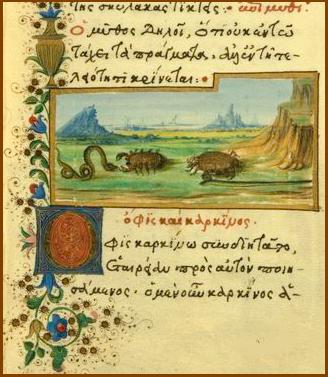 σκύλακας τίκτεις. ἐπιμύθι.
Ὁ μῦθος δηλοῖ, ὅτι οὐκ ἐν τῷ
τάχει τὰ πράγματα, ἀλλ' ἐν τῇ τε-
λειότητι κρίνεται:
ὄφις καὶ καρκῖνος.
Ὄφις καρκίνῳ συνδιῃτᾶτο,
ἑταιρείαν πρὸς αὐτὸν ποιη-
σάμενος. ὁ μὲν οὖν καρκῖνος ἁ-